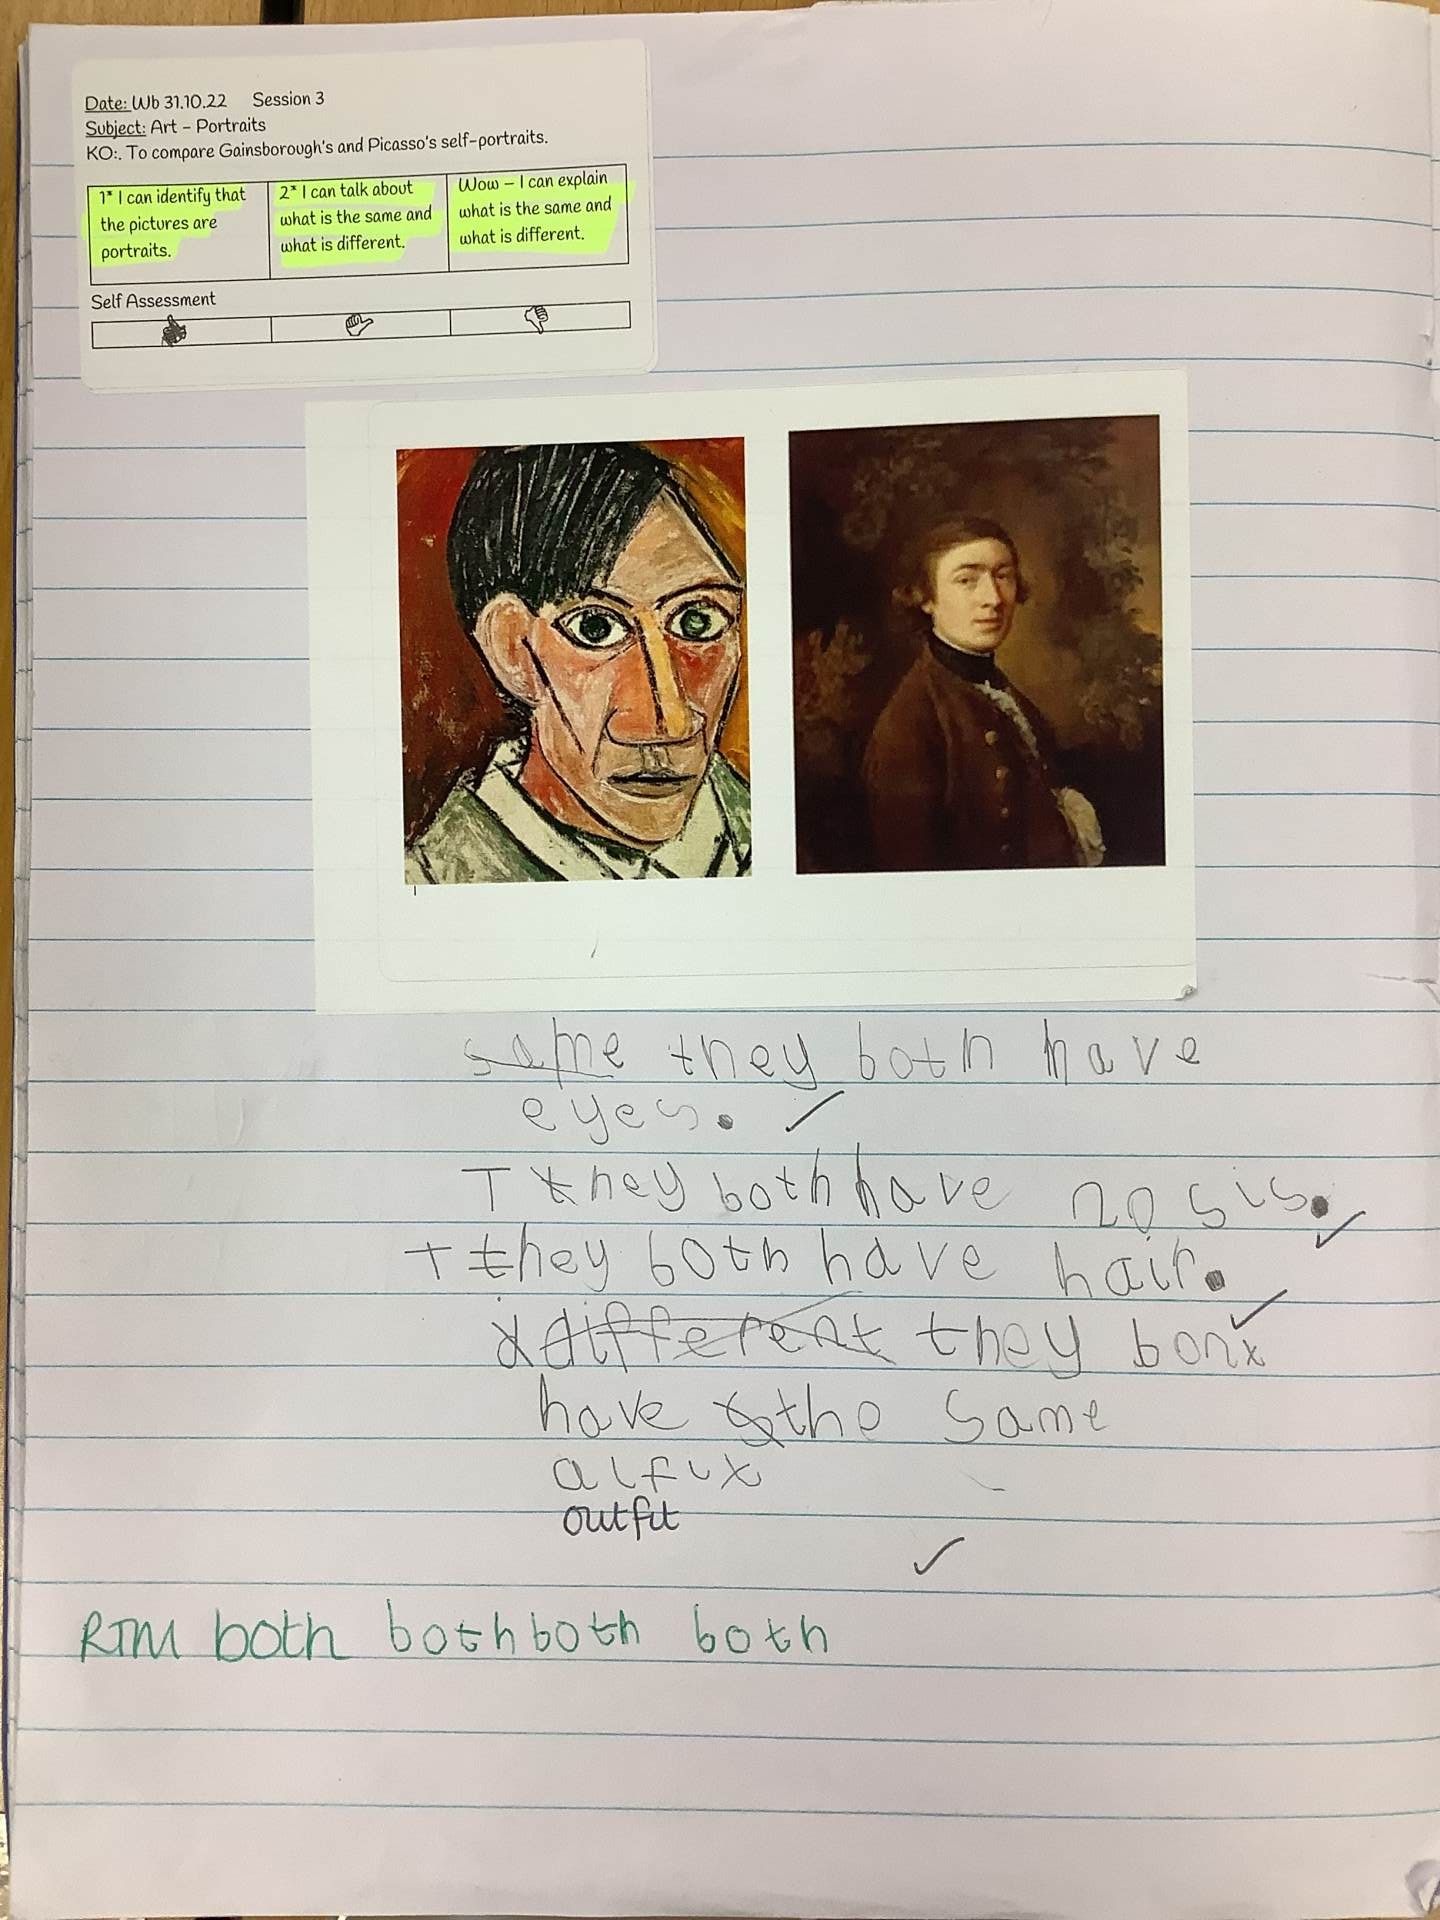 Date: Wb 31.10.22 Session 3
Subject: Art - Portraits
KO:. To compare Gainsborough's and Picasso's self-portraits.
1* I can identify that
the pictures are
portraits.
2* I can talk about
what is the same and
what is different.
Wow – I can explain
what is the same and
what is different.
Self Assessment
same they both have
eyes.
T they both have nosis.
T they both have hair.
different they bonx
have the same
alfux
outfit
RTM both both both both